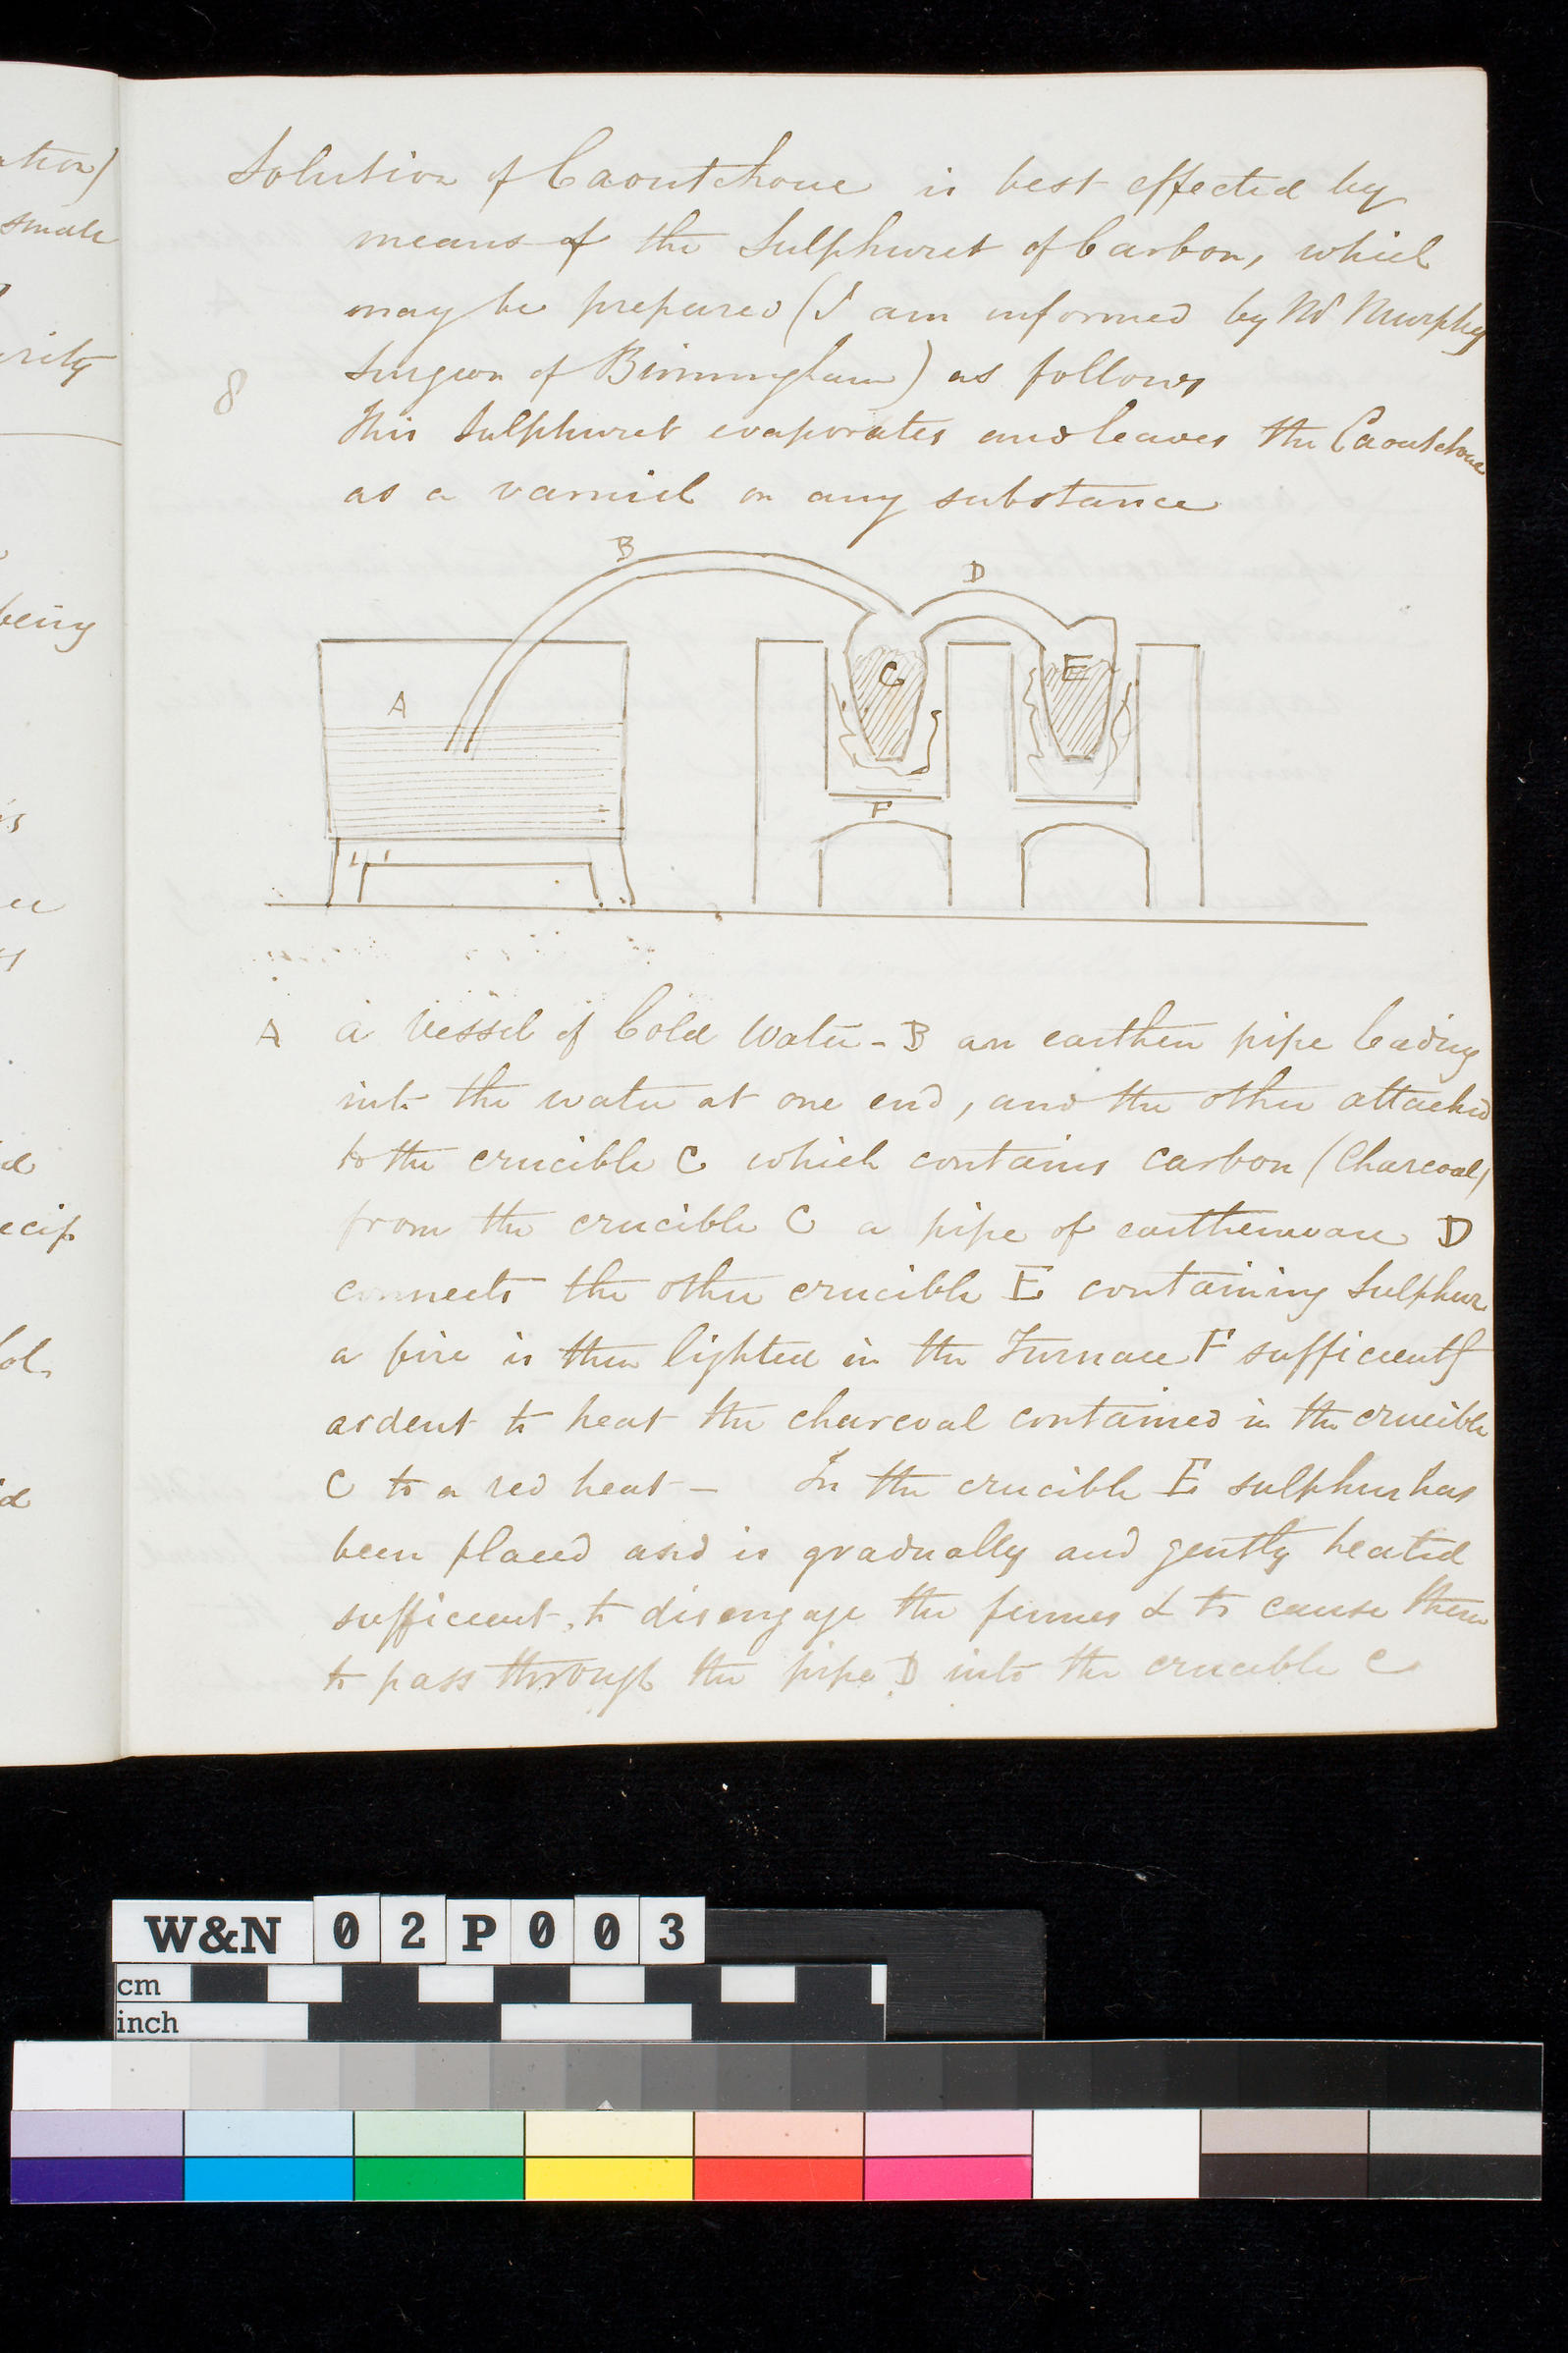 ation)
small
urity
being
is
recip
Sol.
Solution of Caoutchouc is best effected by
means of the Sulphuret of Carbon, which
may be prepared (I am informed by Mr Murphy
Surgeon of Birmingham) as follows
8
This Sulphuret evaporates and leaves the Caoutchouc
as a varnish on any substance
B
D
C
E
A
F
A a Vessel of Cold Water - B an earthen pipe leading
into the water at one end, and the other attached
to the crucible C which contains carbon (Charcoal)
from the crucible C a pipe of earthenware D
connects the other crucible E containing Sulphur
a fire is then lighted in the Furnace F sufficiently
ardent to heat the charcoal contained in the crucible
C to a red heat - In the crucible E sulphur has
been placed and is gradually and gently heated
sufficient, to disengage the fumes & to cause them
to pass through the pipe D into the crucible C
W&N 02P003
cm
inch